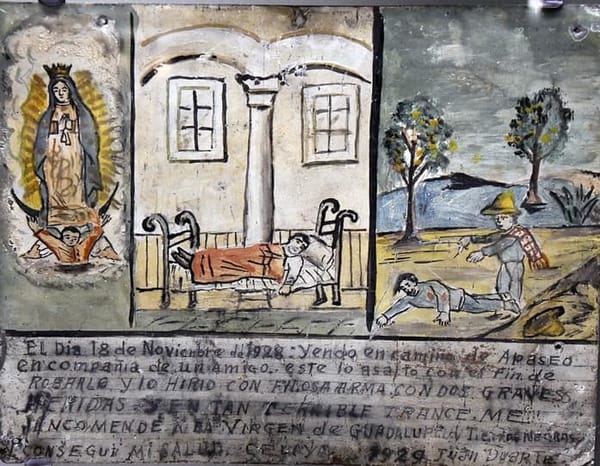 El Dia 18 de Noviembre de 1928: Yendo en camino de APASEO
en compañia de un Amigo. este lo asalto con el Fin de
ROBARLO Y lo HIRIO CON FILOSA ARMA. CON DOS GRAVES
HERIDAS Y EN TAN TERRIBLE TRANCE ME
ENCOMENDE A LA VIRGEN de GUADALUPE TIERRAS NEGRAS
CONSEGUI MI SALUD. CELAYA 1929 Juan Duarte